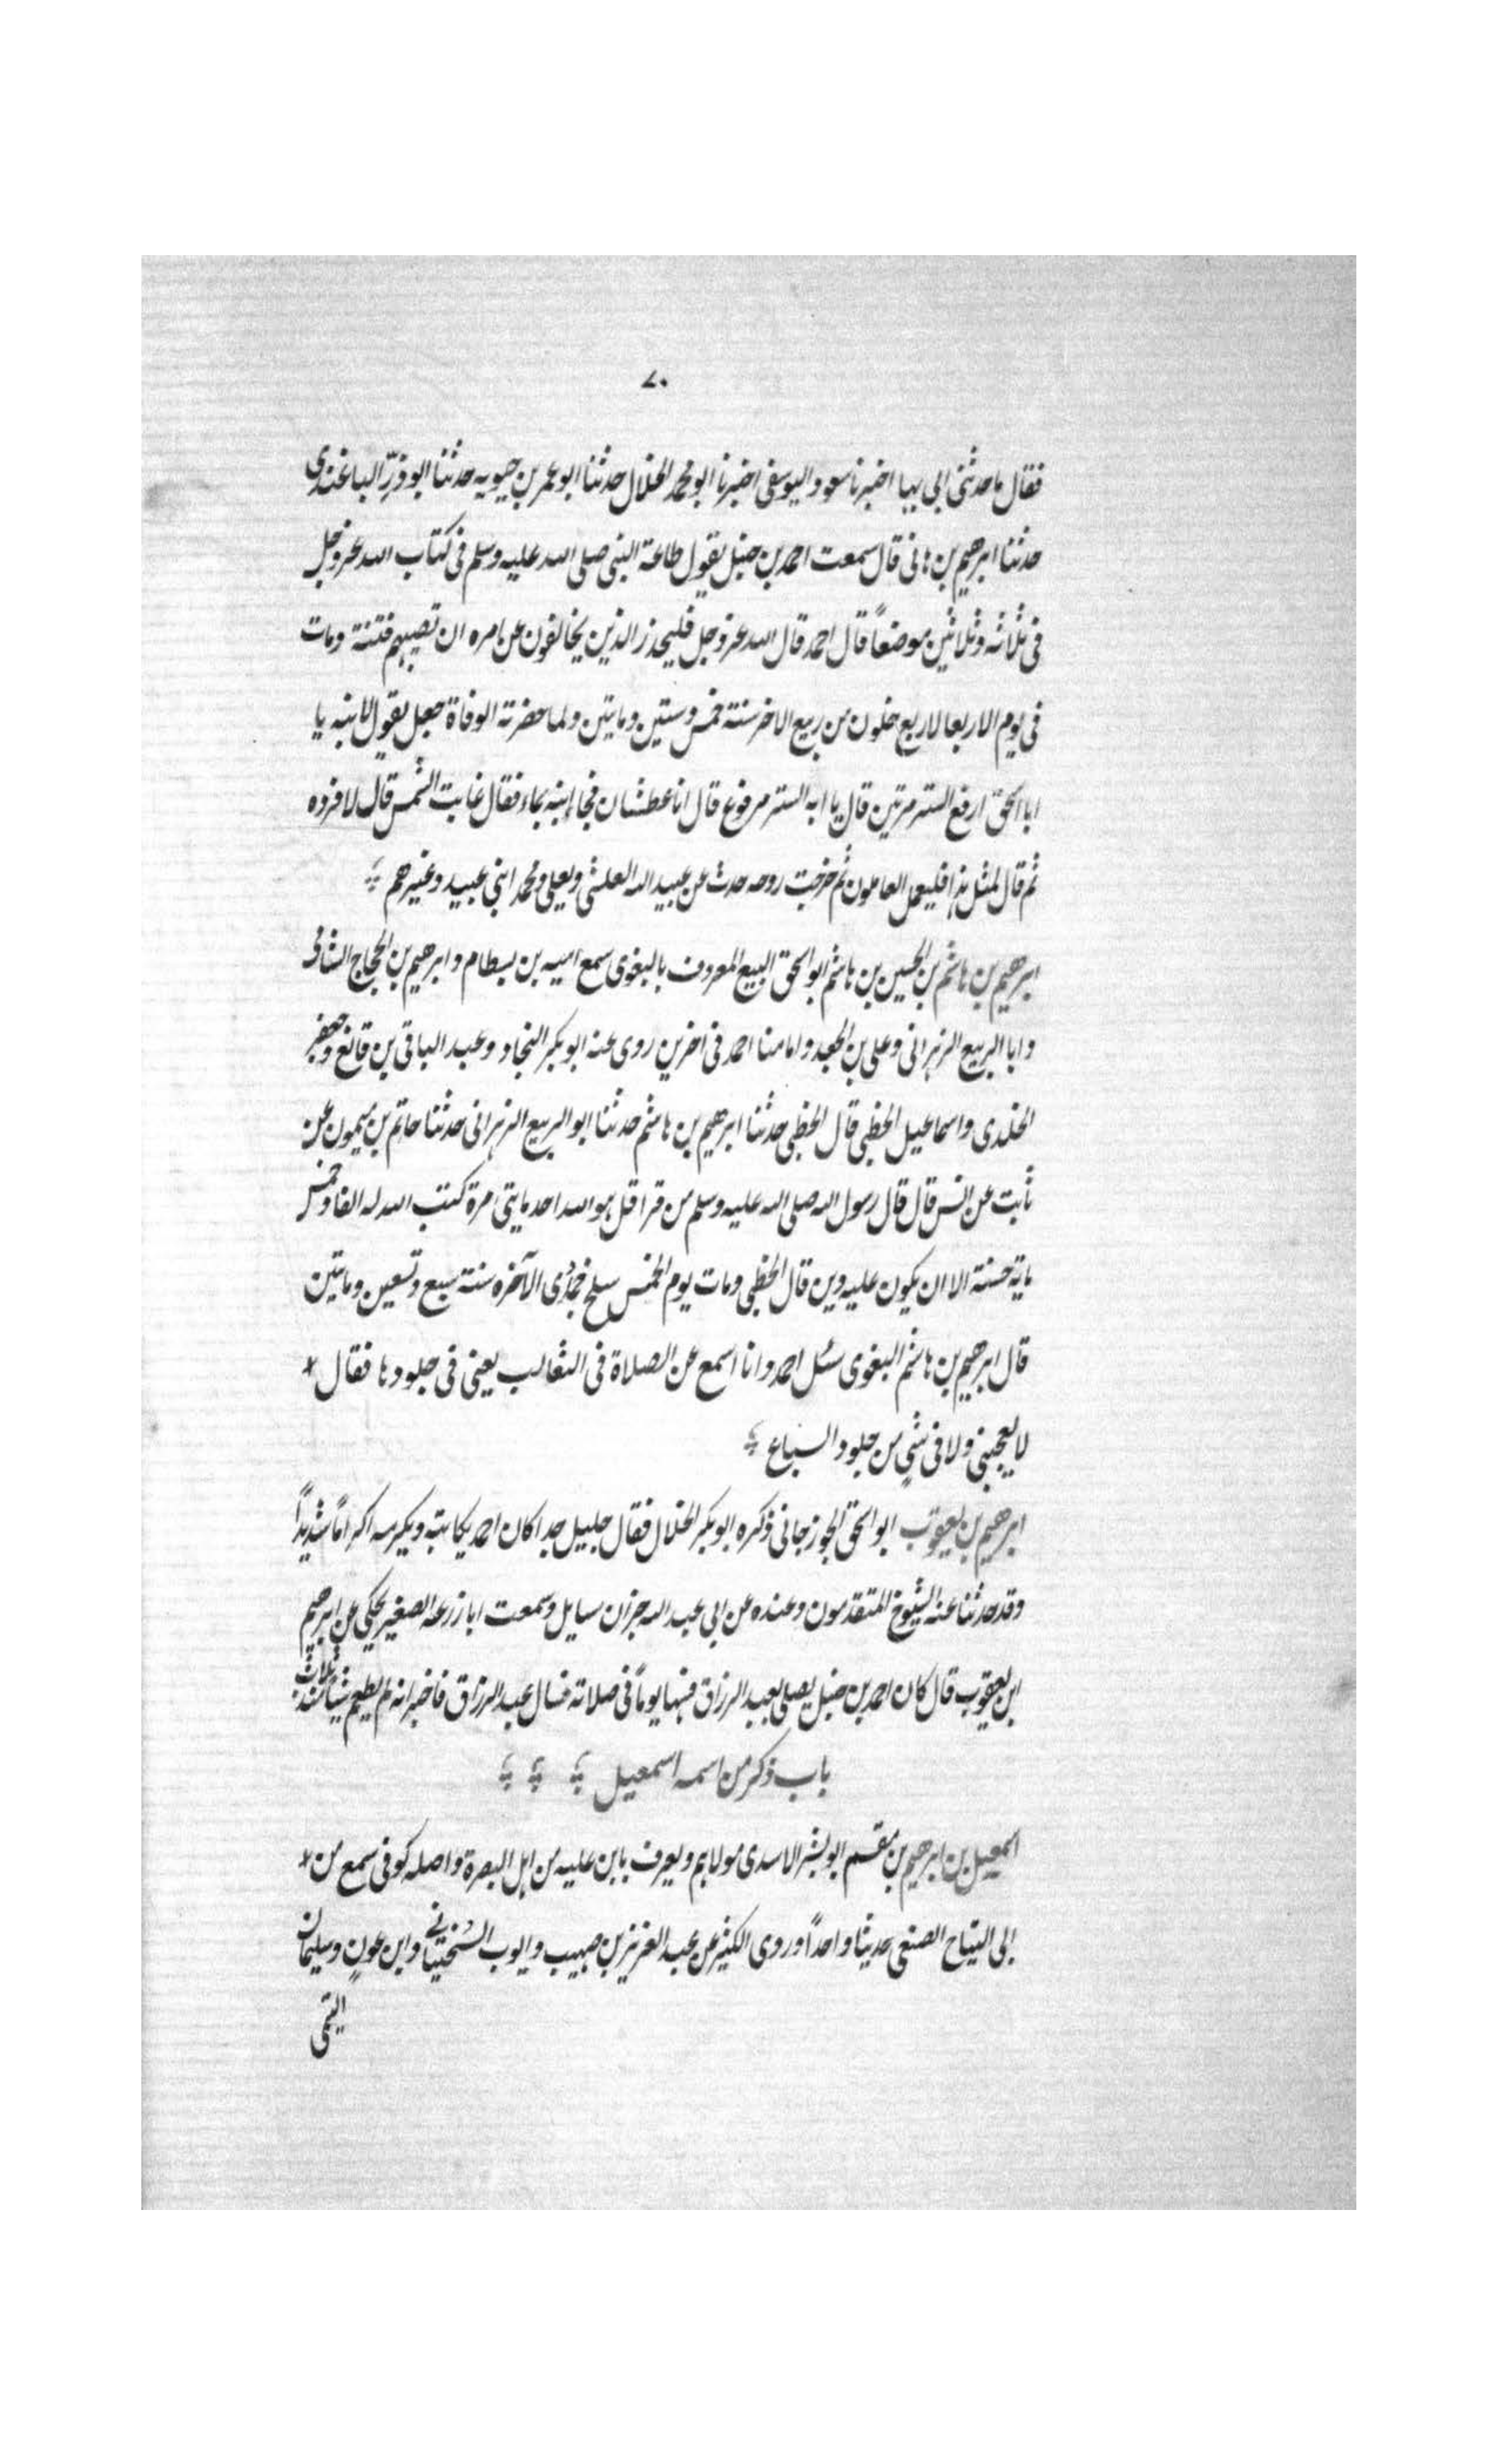 ٧٠
فقال ما حدثنى ابى بهيا اخبرنا سعود اليوسفى اخبرنا ابو محمد الخلال حدثنا ابو عمر بن حيويه حدثنا ابو ذرّ الباغندى
حدثنا ابرهيم بن هانى قال سمعت احمد بن حنبل يقول طاعة النبى صلى الله عليه وسلم فى كتاب الله عزوجل
فى ثلاثه وثلاثين موضعاً قال احمد قال الله عزوجل فليحذر الذين يخالفون عن امره ان تصيبهم فتنة ومات
فى يوم الاربعا لاربع خلون من ربيع الاخر سنة خمس وستين ومايتين ولما حضرته الوفاة جعل يقول لابنه يا
ابا اسحق ارفع الستر مرتين قال يا ابه الستر مرفوع قال انا عطشان فجاء ابنه بماء فقال غابت الشمس قال لا فرده
ثم قال لمثل هذا فليعمل العاملون ثم خرجت روحه حدث عن عبيد الله العلشى ويعلى ومحمد ابنى عبيد وغيرهم
ابرهيم بن هاشم بن الحسين بن هاشم ابو اسحق البيع المعروف بالبغوى سمع اميه بن بسطام وابرهيم بن الحجاج الشافى
وابا الربيع الزهرانى وعلى بن الجعد وامامنا احمد فى اخرين روى عنه ابو بكر النجاد وعبد الباقى بن قانع وجعفر
الخلدى واسماعيل الخطبى قال الخطبى حدثنا ابرهيم بن هاشم حدثنا ابو الربيع الزهرانى حدثنا حاتم بن ميمون عن
ثابت عن انس قال قال رسول الله صلى الله عليه وسلم من قرا قل هو الله احد مايتى مرة كتب الله له الفا وخمس
ماية حسنة الا ان يكون عليه دين قال الخطبى ومات يوم الخمس سلخ جمادى الآخره سنة سبع وتسعين ومايتين
قال ابرهيم بن هاشم البغوى سئل احمد وانا اسمع عن الصلاة فى الثعالب يعنى فى جلودها فقال
لا يعجبنى ولا فى شى من جلود السباع
ابرهيم بن يعقوب ابو اسحق الجوزجانى ذكره ابو بكر الخلال فقال جليل جدا كان احمد يكاتبه ويكرمه اكراماً شديداً
وقد حدثنا عنه الشيوخ المتقدمون وعنده عن ابى عبد الله جزان مسايل وسمعت ابا زرعه الصغير يحكى عن ابرهيم
ابن يعقوب قال كان احمد بن حنبل يصلى بعبد الرزاق فسها يوماً فى صلاته فسال عبد الرزاق فاخبر انه لم يطعم شيا منذ ثلاث
باب ذكر من اسمه اسمعيل
اسمعيل بن ابرهيم بن مقسم ابو بشر الاسدى مولاهم ويعرف بابن عليه من اهل البصرة واصله كوفى سمع من
ابى التياح الضبعى حديثا واحداً وروى الكثير عن عبد العزيز بن صهيب وايوب السختيانى وابن عون وسليمان
التيمى